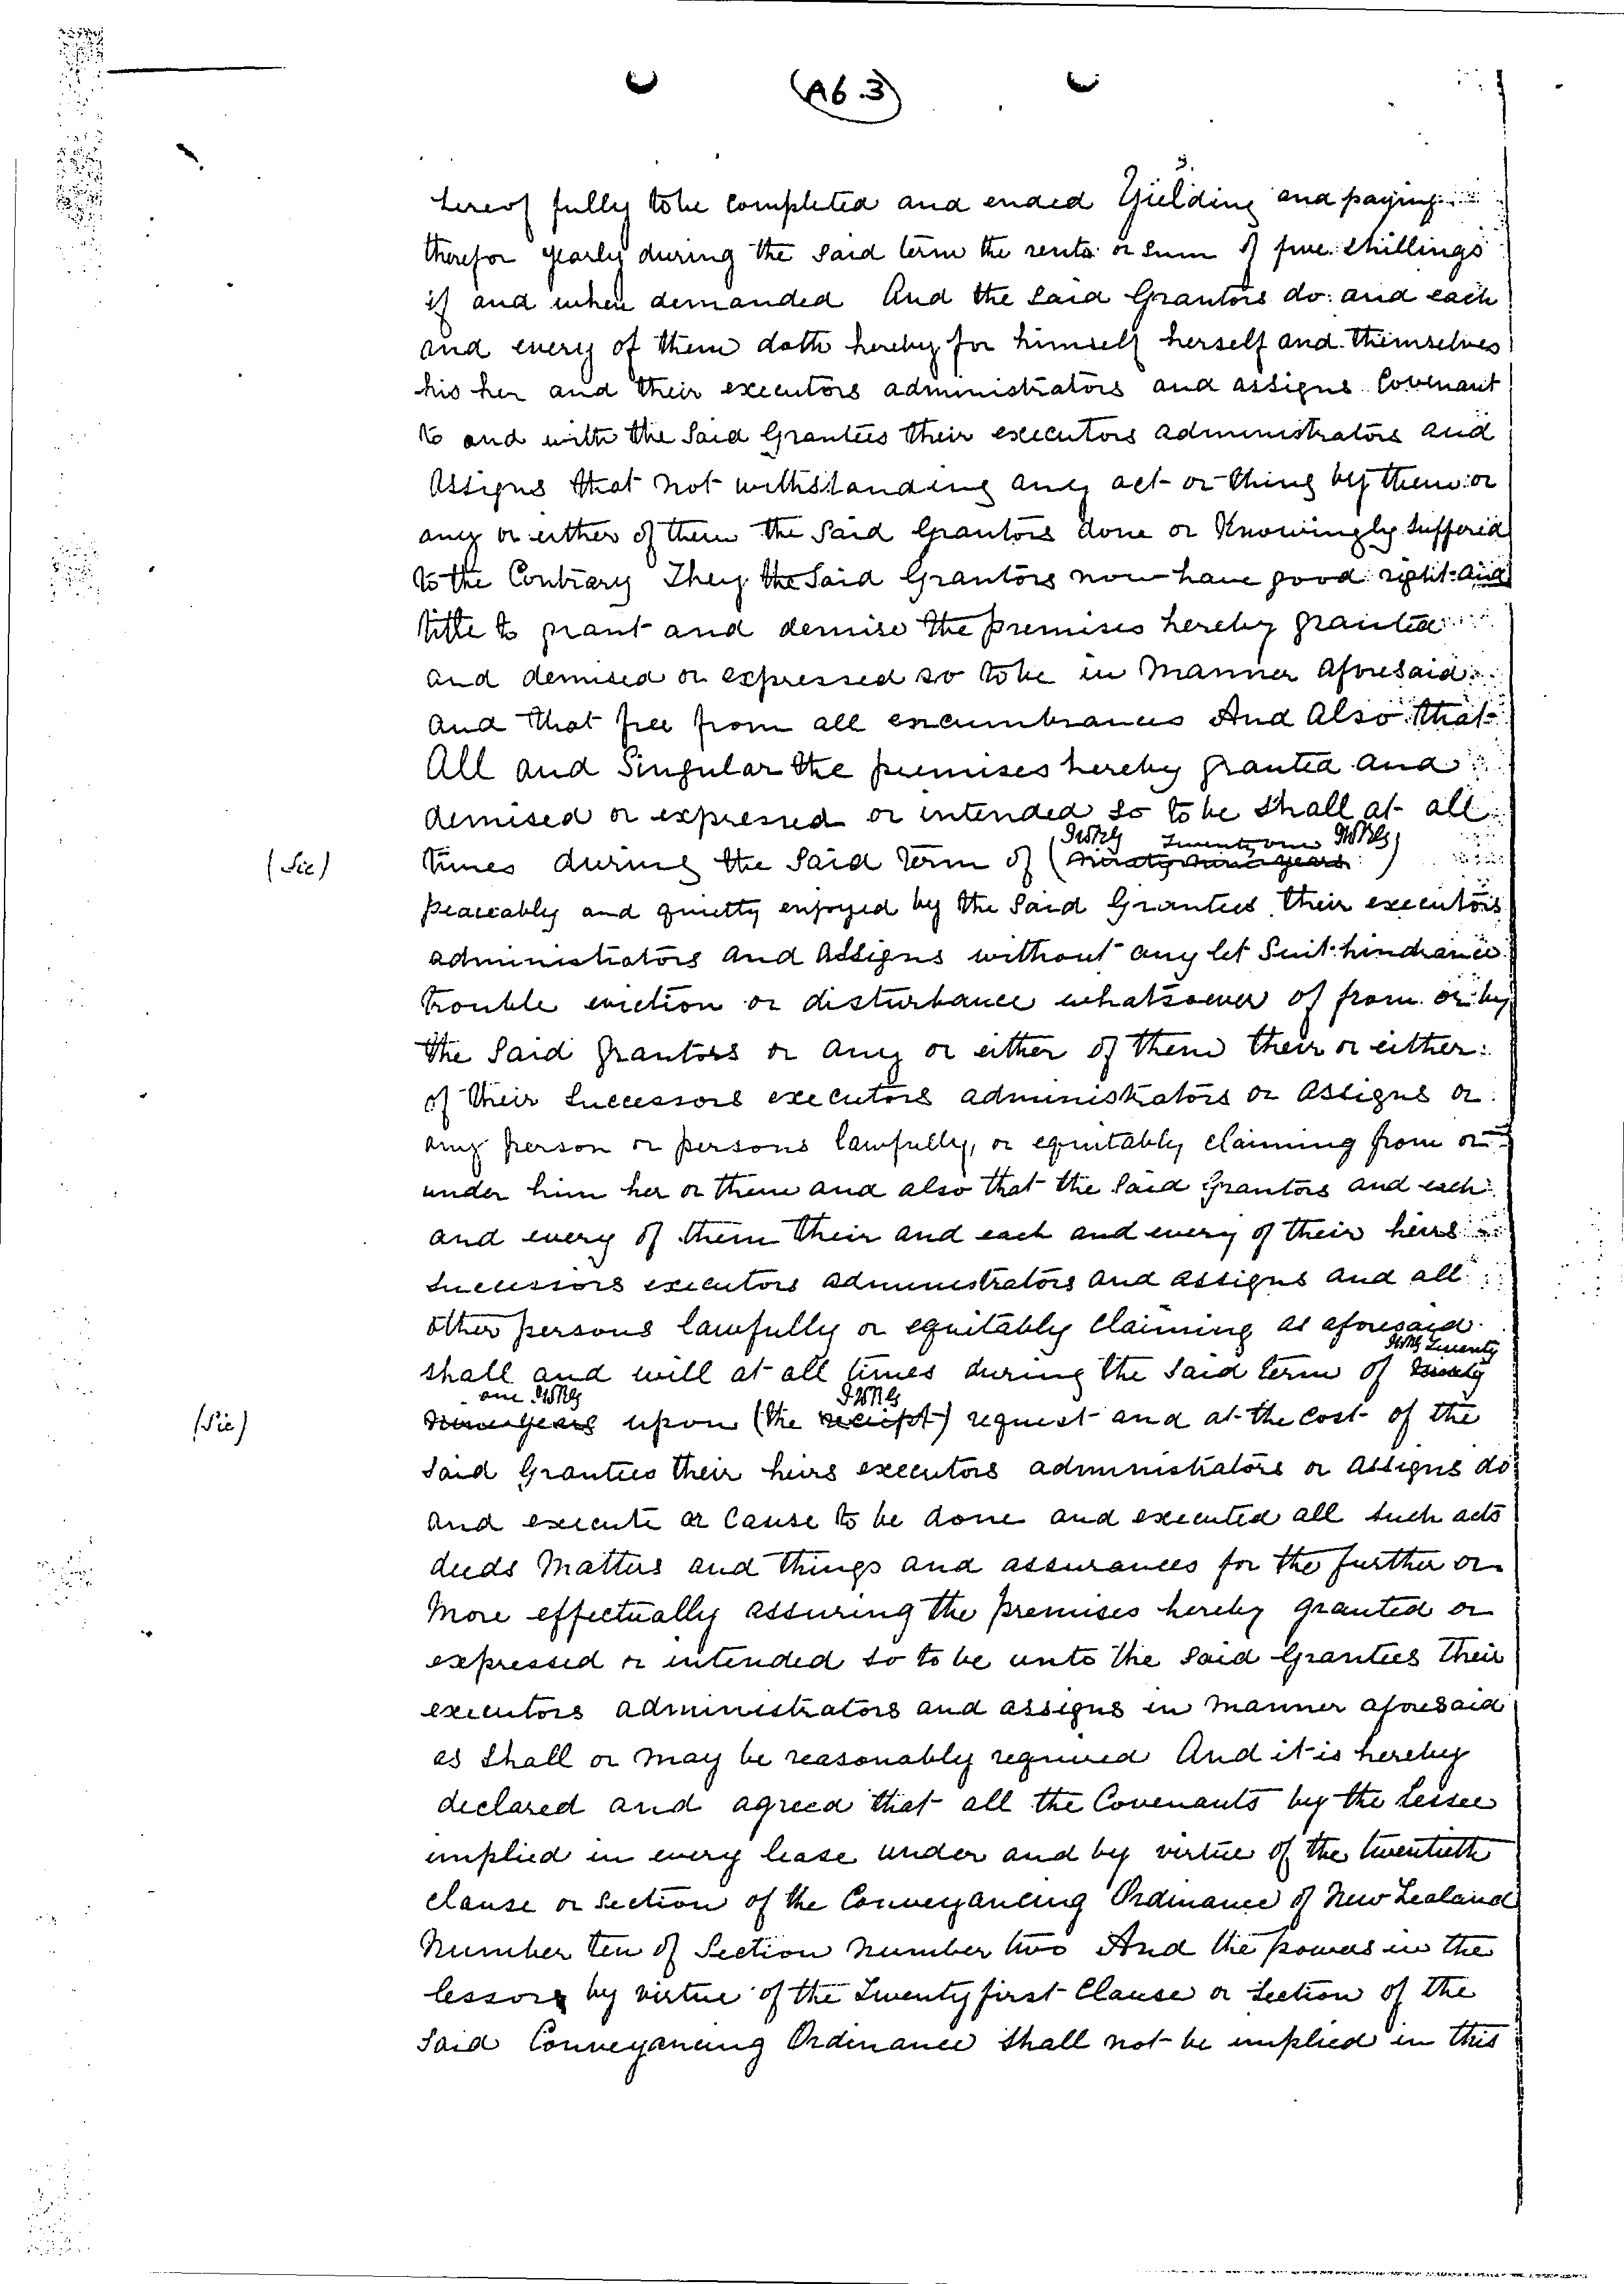 (A6.3)
3.
hereof fully to be completed and ended Yielding and paying
therefor yearly during the said term the rents or sum of five shillings
if and when demanded And the said Grantors do and each
and every of them doth hereby for himself herself and themselves
his her and their executors administrators and assigns Covenant
to and with the Said Grantees their executors administrators and
Assigns that not withstanding any act or thing by them or
any or either of them the Said Grantors done or Knowingly suffered
to the Contrary They the Said Grantors now have good right and
title to grant and demise the premises hereby granted
and demised or expressed so to be in Manner aforesaid
and that free from all encumbrances And Also that
All and Singular the premises hereby granted and
demised or expressed or intended so to be shall at all
Twenty one
(Sic) times during the Said Term of (Ninety nine years)
peaceably and quietly enjoyed by the Said Grantees their executors
administrators and Assigns without any let Suit hindrance
trouble eviction or disturbance whatsoever of from or by
the Said Grantors or any or either of them their or either
of their Successors executors administrators or assigns or
any person or persons lawfully or equitably claiming from or
under him her or them and also that the said Grantors and each
and every of them their and each and every of their heirs
successors executors administrators and assigns and all
other persons lawfully or equitably claiming as aforesaid
Twenty
shall and will at all times during the said term of Ninety
one
(Sic) Nine years upon (the receipt) request and at the cost of the
said Grantees their heirs executors administrators or assigns do
and execute or cause to be done and executed all such acts
deeds Matters and things and assurances for the further or
More effectually assuring the premises hereby granted or
expressed or intended so to be unto the said Grantees their
executors administrators and assigns in Manner aforesaid
as shall or may be reasonably required And it is hereby
declared and agreed that all the Covenants by the Lessee
implied in every lease under and by virtue of the twentieth
clause or section of the Conveyancing Ordinance of New Zealand
Number ten of Section Number two And the powers in the
lessors by virtue of the Twenty first Clause or Section of the
Said Conveyancing Ordinance shall not be implied in this